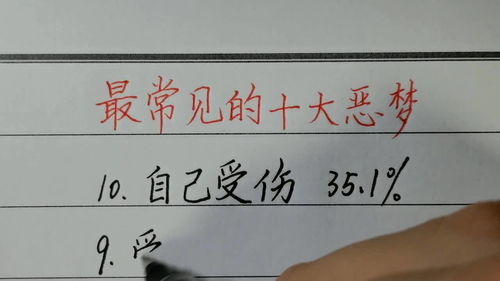 最常见的十大恶梦
10. 自己受伤 35.1%
9.